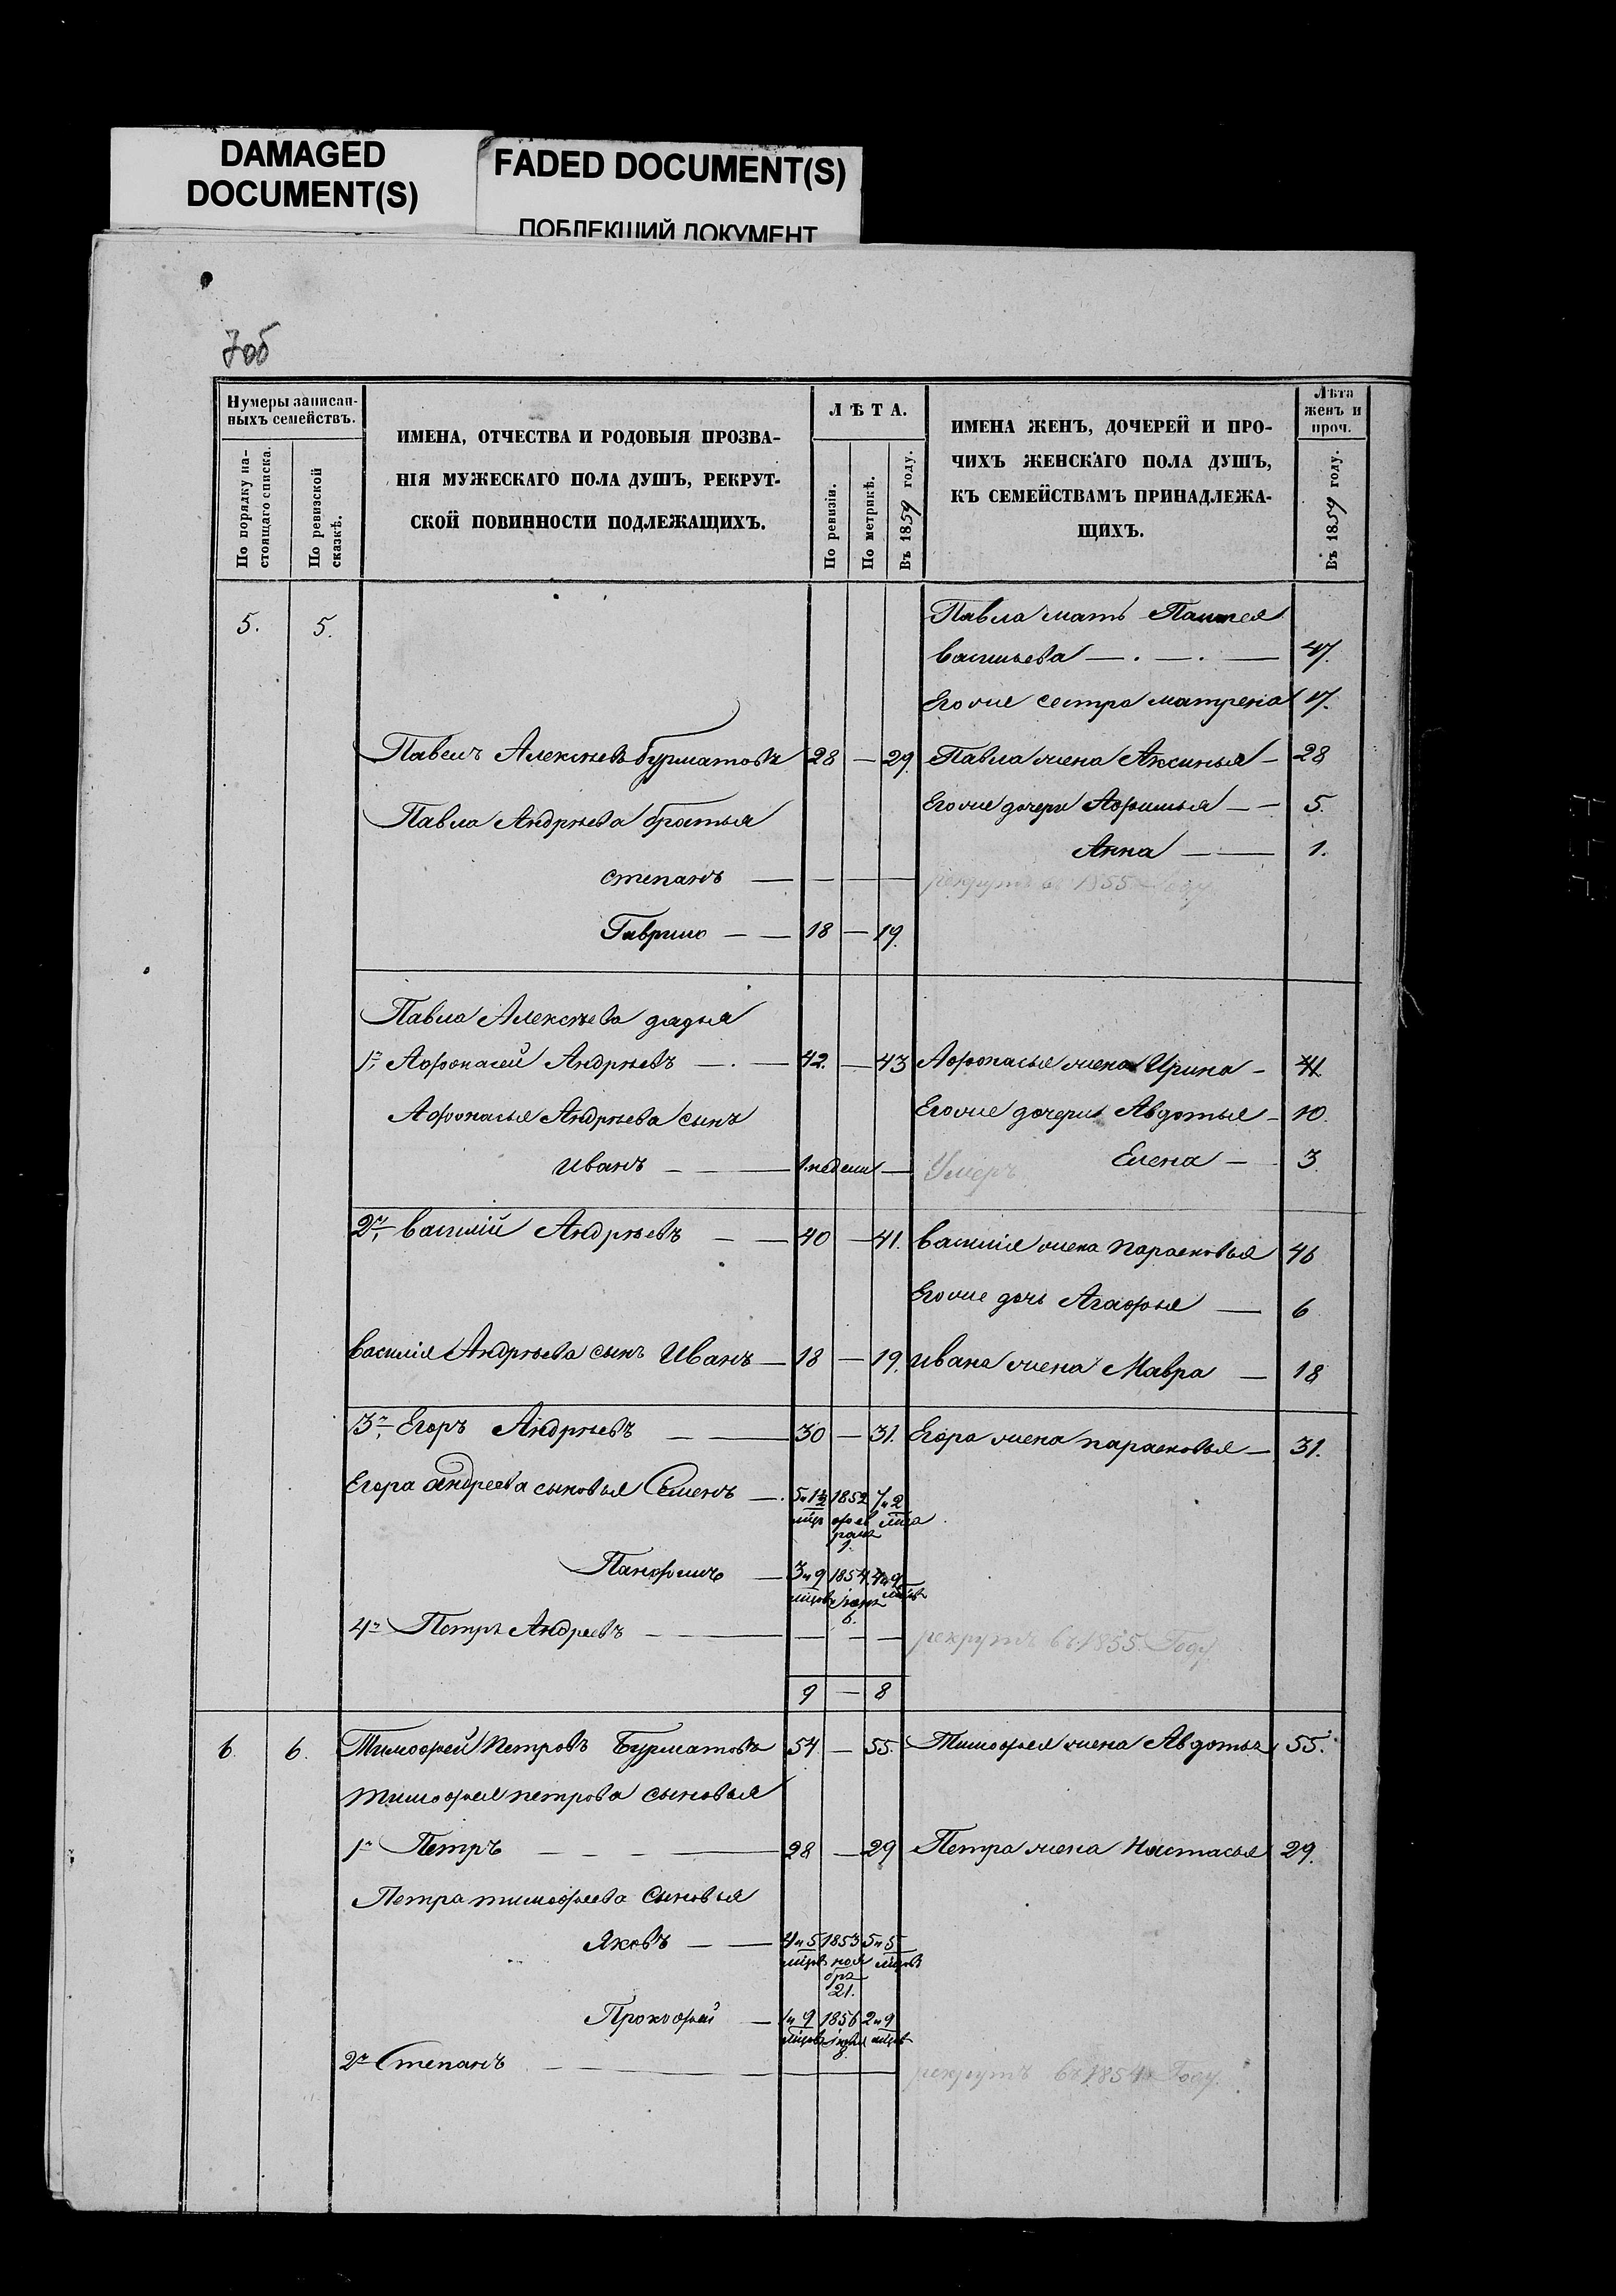 DAMAGED
DOCUMENT(S)
FADED DOCUMENT(S)
ПОБЛЕКШИЙ ДОКУМЕНТ
7об
Нумеры записан-
ныхъ семействъ.
По порядку на-
стоящаго списка.
По ревизской
сказкѣ.
ИМЕНА, ОТЧЕСТВА И РОДОВЫЯ ПРОЗВА-
НІЯ МУЖЕСКАГО ПОЛА ДУШЪ, РЕКРУТ-
СКОЙ ПОВИННОСТИ ПОДЛЕЖАЩИХЪ.
ЛѢТА.
По ревизіи.
По метрикѣ.
Въ 1859 году.
ИМЕНА ЖЕНЪ, ДОЧЕРЕЙ И ПРО-
ЧИХЪ ЖЕНСКАГО ПОЛА ДУШЪ,
КЪ СЕМЕЙСТВАМЪ ПРИНАДЛЕЖА-
ЩИХЪ.
Лѣта
женъ и
проч.
Въ 1859 году.
5. 5. Павла мать
Васильева — . — . — 47.
Егоже сестра матрена 17.
Павелъ Алексѣевъ Бурматовъ 28 — 29. Павла жена Аксинья — 28
Егоже дочери Афимья — — 5.
Павла Андрѣева братья
Анна — — 1.
степанъ — — — рекрутъ въ 1855 Году
Гаврило — — 18 — 19.
Павла Алексѣева дядья
1й Афонасей Андрѣевъ — . — 42. — 43 Афонасья жена Ирина — 41.
Афонасья Андрѣева сынъ Егоже дочери Авдотья — 10.
Иванъ — — 1 недели — Умеръ Елена — 3
2й Василій Андрѣевъ — — 40 — 41. Василія жена Парасковья 46
Егоже дочь Агафья — 6
Василія Андрѣева сынъ Иванъ — 18 — 19. Ивана жена Мавра — 18
3й Егоръ Андрѣевъ — — 30 — 31. Егора жена парасковья — 31.
Егора Андреева сыновья Семенъ — 1852
Панфилъ — 3и9 1854 4и9
4й Петръ Андреевъ — — — — — рекрутъ въ 1855. Году
9 — 8
6. 6. Тимофей Петровъ Бурматовъ 54 — 55. Тимофея жена Авдотья 55.
Тимофея петрова сыновья
1й Петръ — — — — 28 — 29 Петра жена Настасья 29.
Петра тимофеева Сыновья
Яковъ — — 4и5 1853 5и5
мцовъ ноя мцовъ
бря
21.
Прокофей — 1и9 1856 2и9
2й Степанъ — — рекрутъ въ 1854 Году.